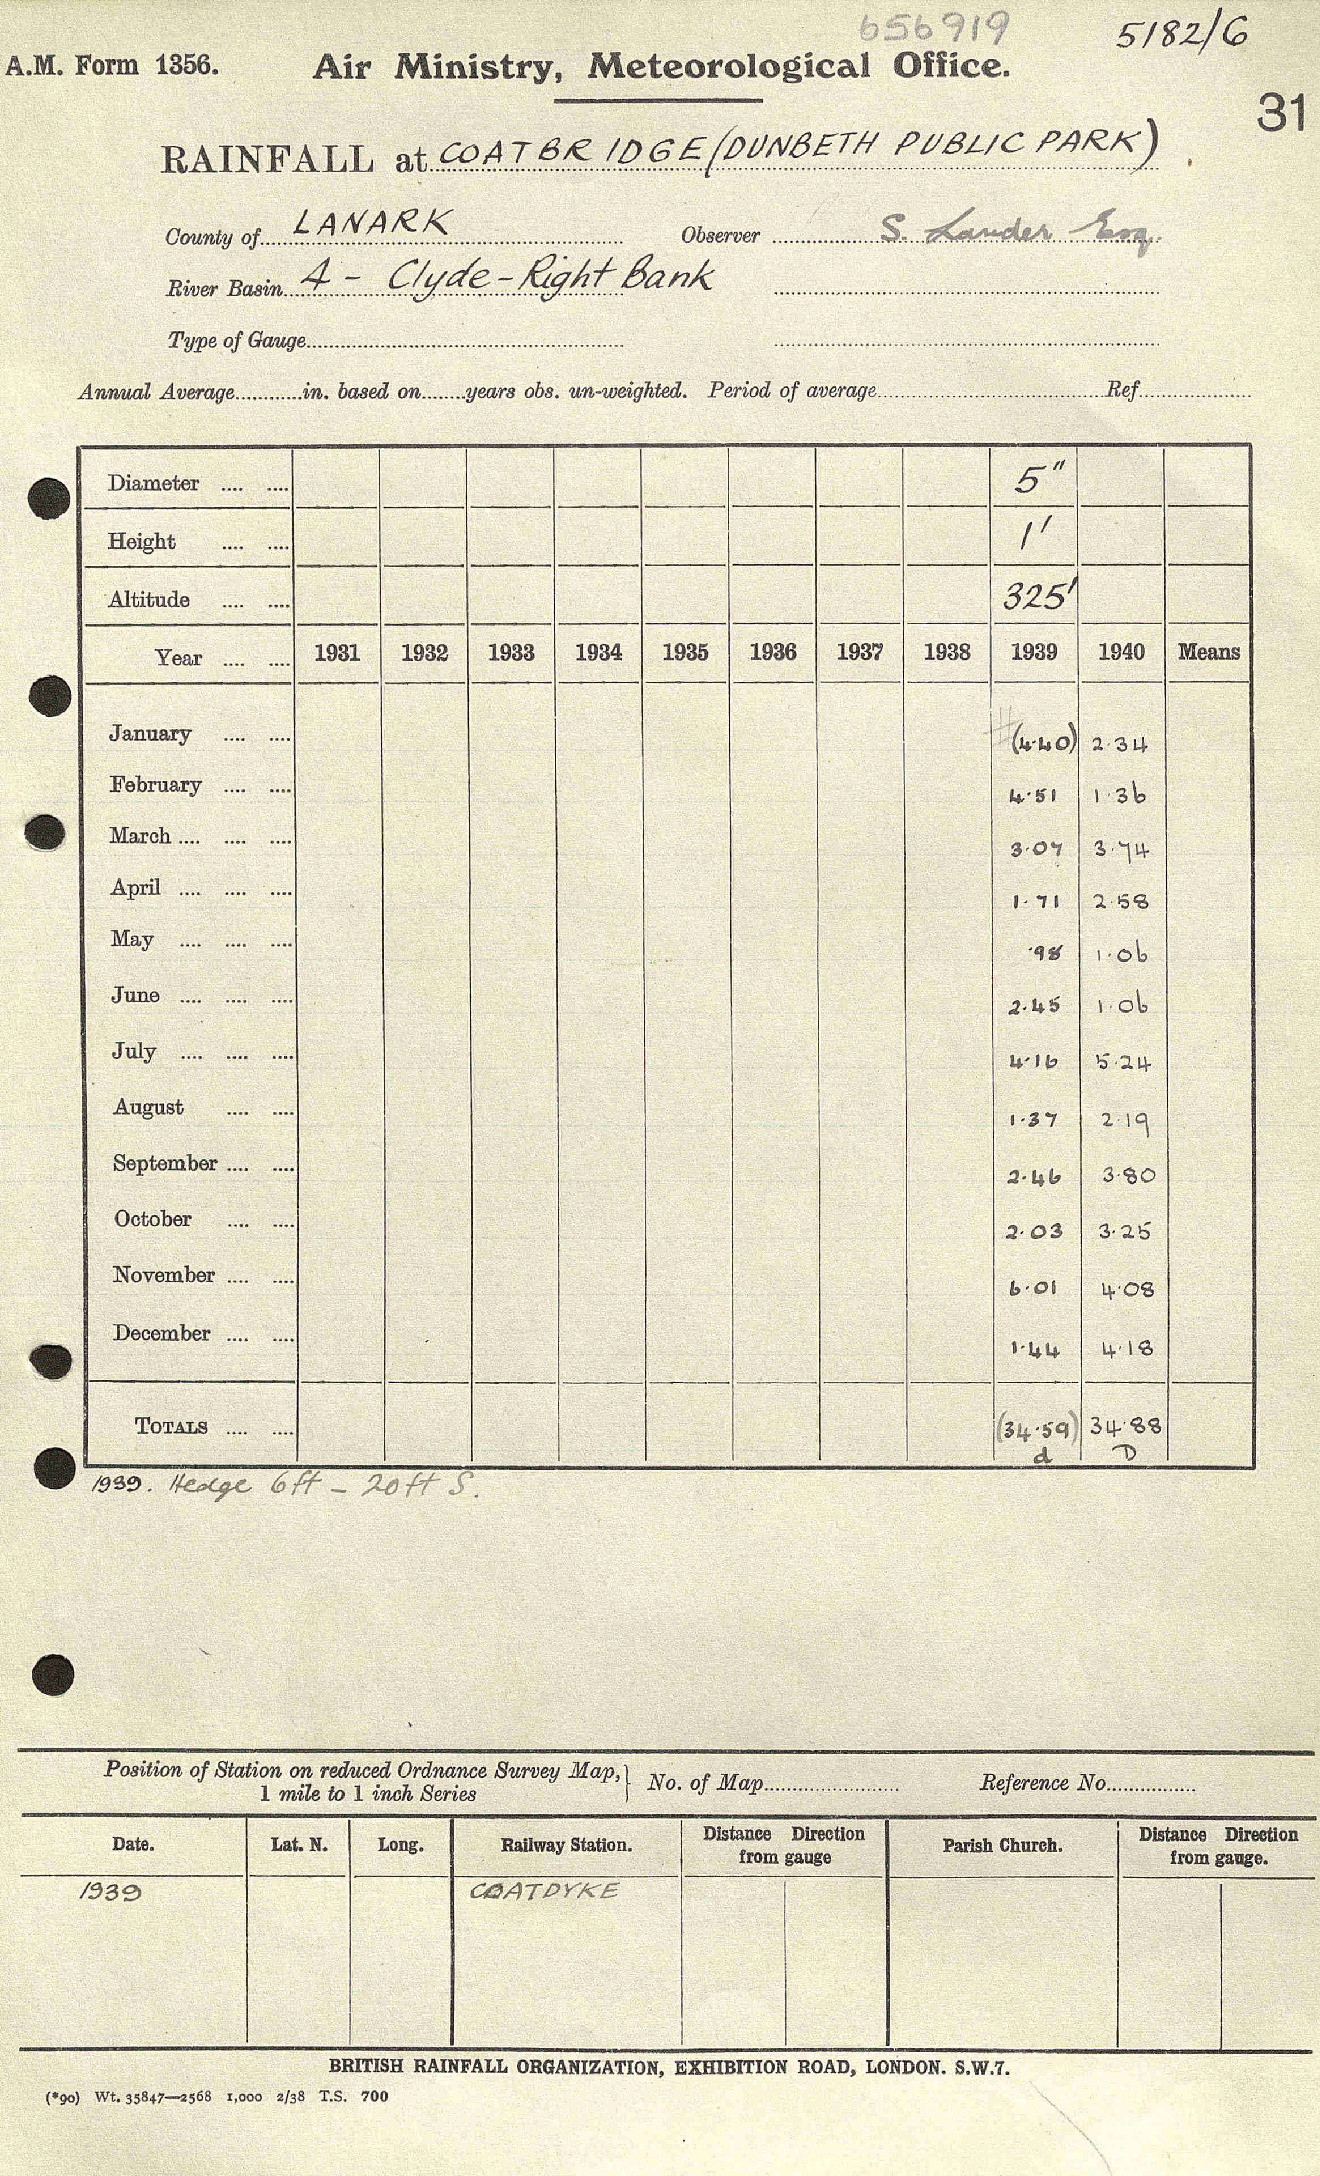 656919
5182/6
A.M. Form 1356. Air Ministry, Meteorological Office.
31
RAINFALL at COATBRIDGE (DUNBETH PUBLIC PARK)
County of LANARK Observer S. Lauder Esq.
River Basin 4 - Clyde - Right Bank
Type of Gauge
Annual Average in. based on years obs. un-weighted. Period of average Ref.
Diameter .... .... 5"
Height .... .... 1'
Altitude .... .... 325'
Year .... .... 1931 1932 1933 1934 1935 1936 1937 1938 1939 1940 Means
January .... .... #(4.40) 2.34
February .... .... 4.51 1.36
March .... .... .... 3.07 3.74
April .... .... .... 1.71 2.58
May .... .... .... .98 1.06
June .... .... .... 2.45 1.06
July .... .... .... 4.16 5.24
August .... .... 1.37 2.19
September .... .... 2.46 3.80
October .... .... 2.03 3.25
November .... .... 6.01 4.08
December .... .... 1.44 4.18
TOTALS .... .... (34.59) 34.88
d D
1939. Hedge 6ft - 20ft S.
Position of Station on reduced Ordnance Survey Map, 1 mile to 1 inch Series } No. of Map Reference No.
Date. Lat. N. Long. Railway Station. Distance Direction from gauge Parish Church. Distance Direction from gauge.
1939 COATDYKE
BRITISH RAINFALL ORGANIZATION, EXHIBITION ROAD, LONDON. S.W.7.
(*90) Wt. 35847—2568 1,000 2/38 T.S. 700